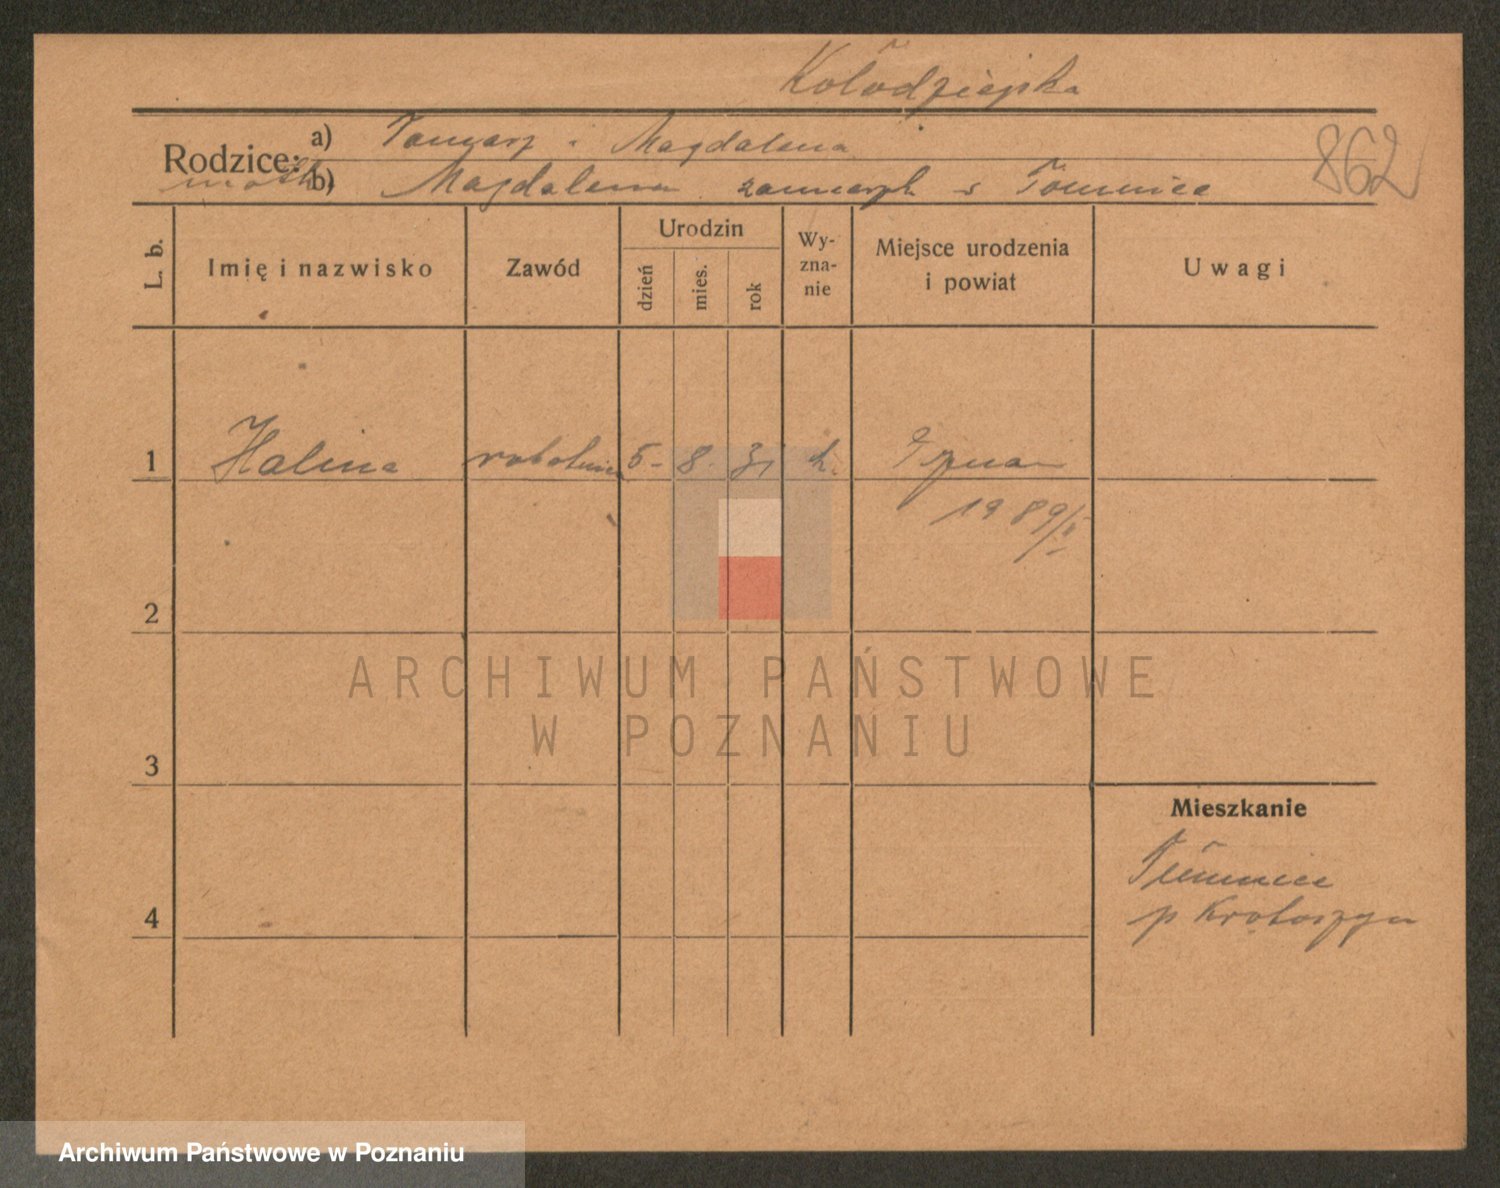 Kołodziejska
Rodzice: a) i Magdalena
862
matka b) Magdalena zamieszk w Tomnice
L. b.
Imię i nazwisko
Zawód
Urodzin
dzień
mies.
rok
Wy-
zna-
nie
Miejsce urodzenia
i powiat
Uwagi
1 Halina robotnica 5. 8. 31 k.
2
ARCHIWUM PAŃSTWOWE
W POZNANIU
3
Mieszkanie
4
p Krotoszyn
Archiwum Państwowe w Poznaniu